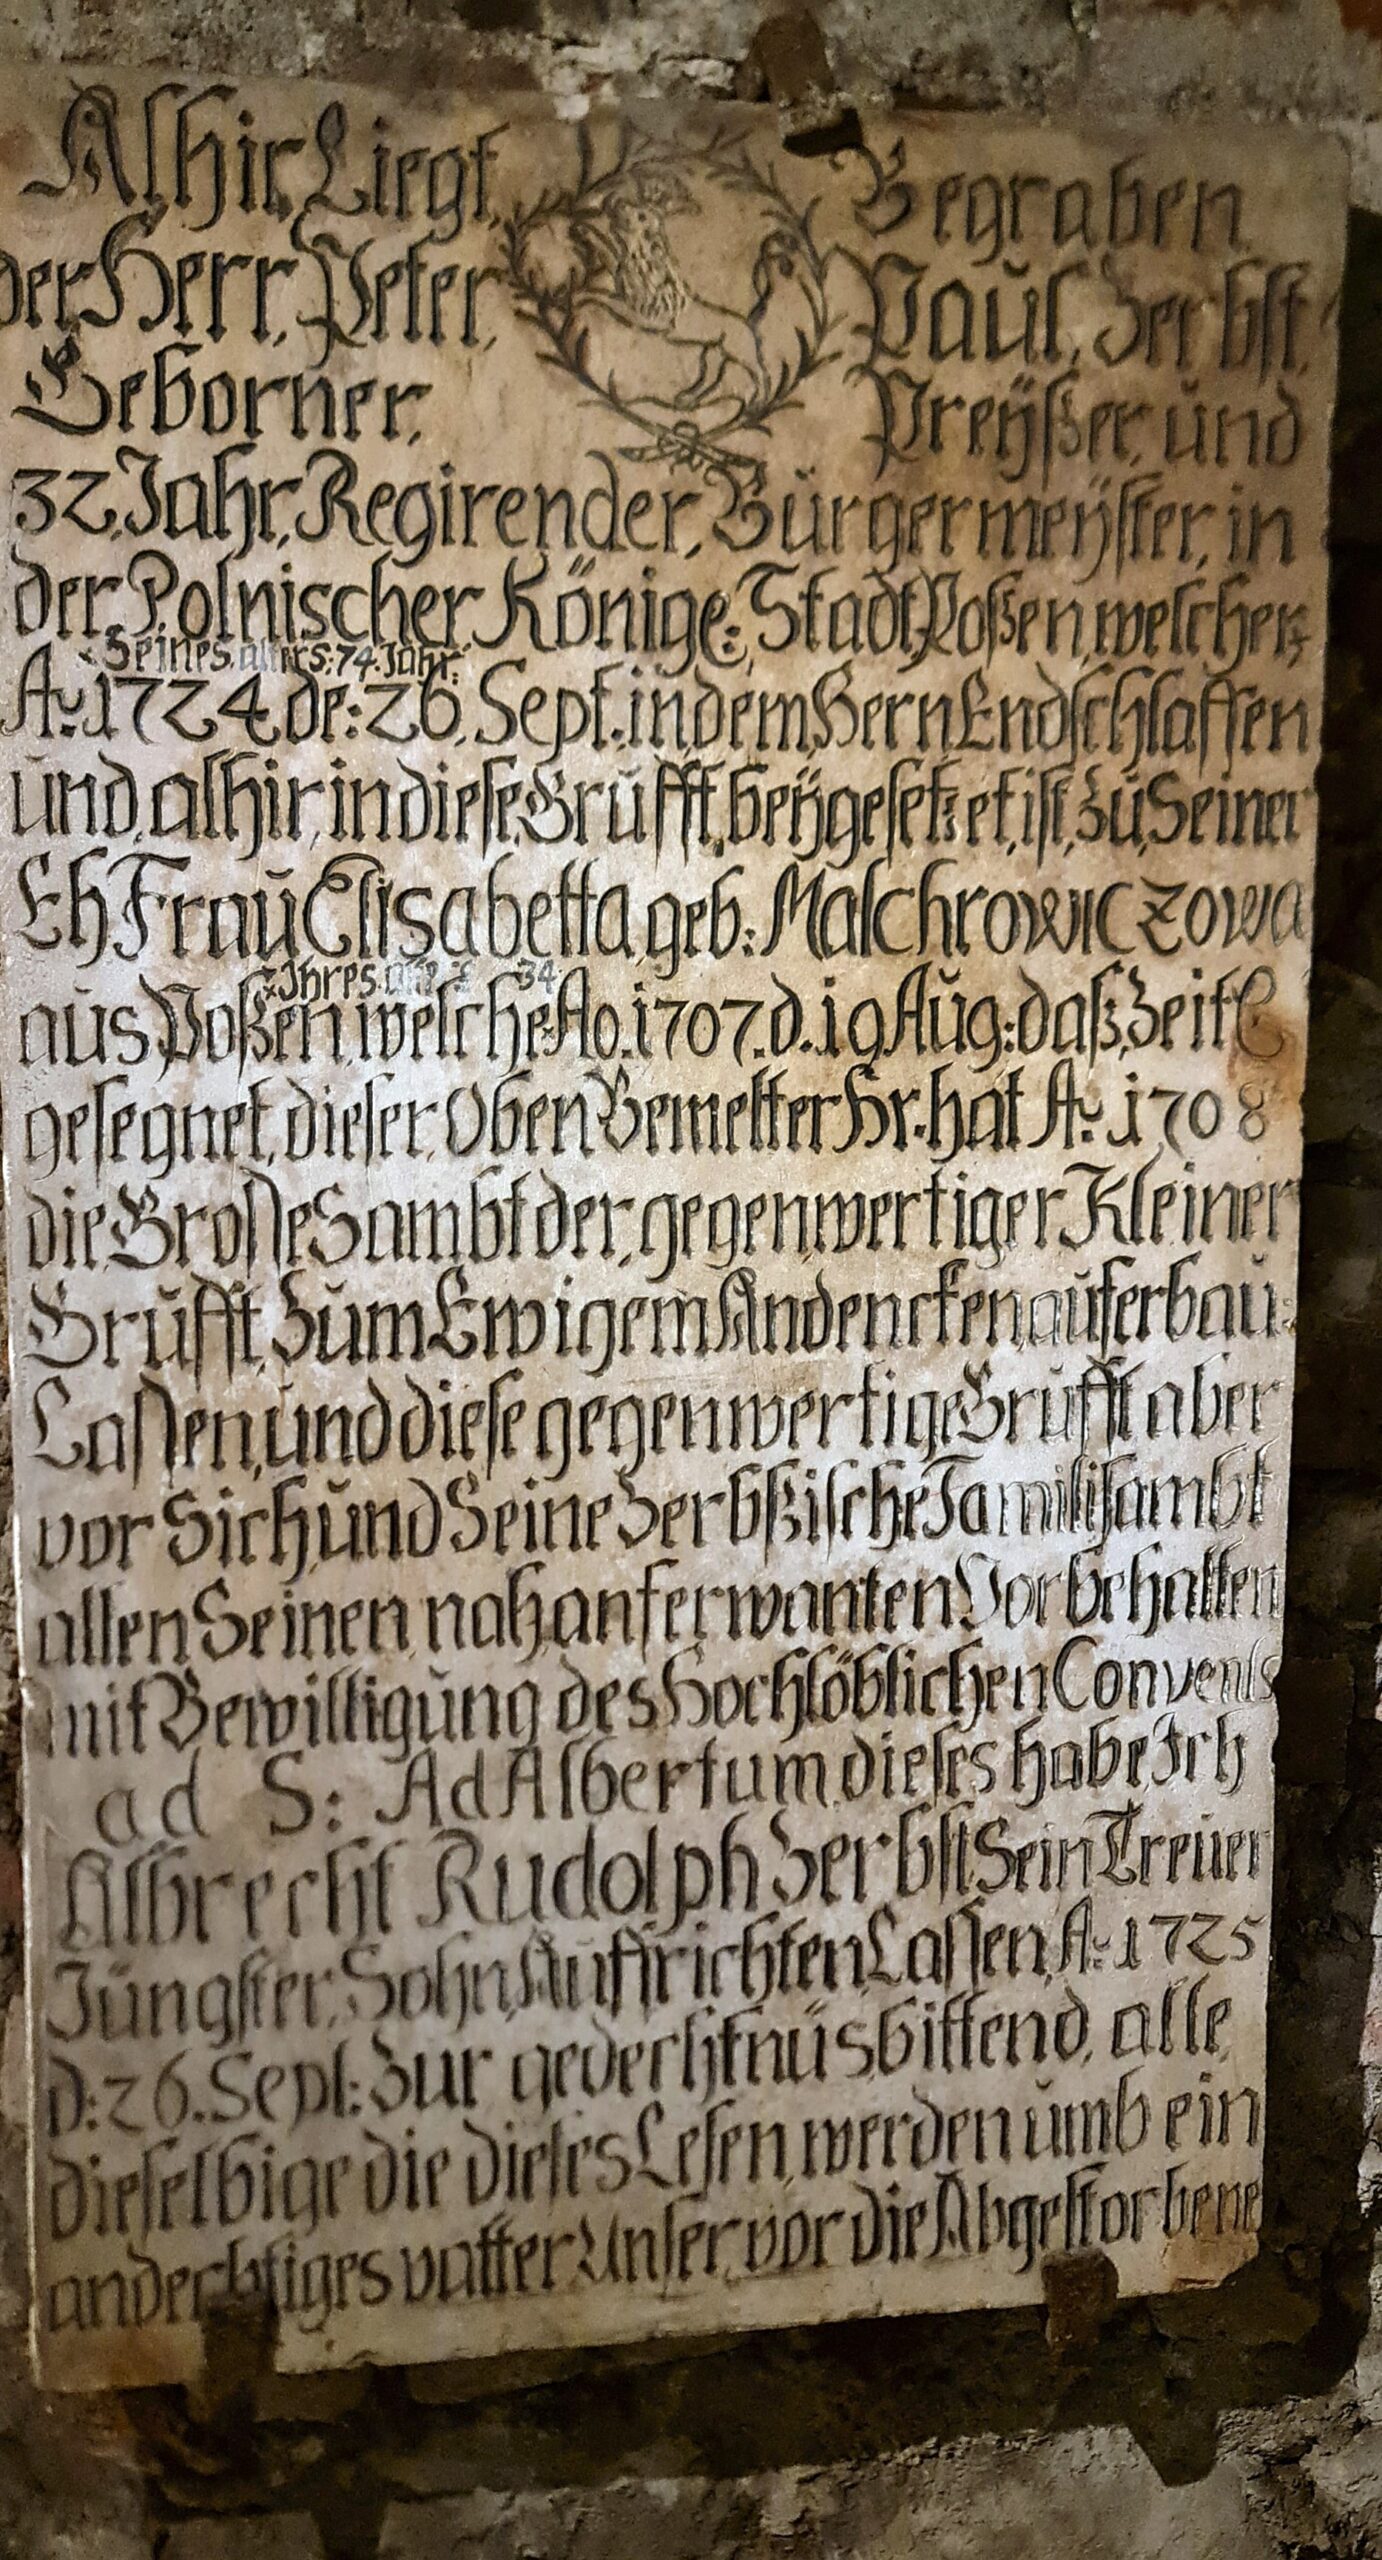 Alhir, Liegt, Begraben
der Herr, Peter, Paul, Zerbst,
Geborner, Preÿßer, und
32, Jahr, Regirender, Bürgermeÿster, in
der, Polnischer Könige: Stadt, Poßen, welcher,
Seines alters: 74: Jahr:
Aͦ: 1724, de: 26, Sept: in, dem, Hern, Endschlaffen
und, alhir, in diese, Grufft, beÿgesetzet, ist, zu, Seiner
Eh Frau Elisabetta, geb: Malchrowiczowa
Ihres 34
aus Poßen, welche Ao. 1707. d. 19 Aug: daß, Zeitl
gesegnet, dieser, Oben Bemelter Hr. hat Aͦ: 1708
die, Grosse Sambt der, gegenwertiger Kleiner
Grufft, Zum Ewigem Andencken auferbau:
Lassen, und diese gegenwertige Grufft aber
vor Sich und Seine Zerbstische Famili sambt
allen Seinen nahanferwanten Vorbehalten
mit Bewilligung des Hochlöblichen Convents
ad S: AdAlbertum dieses habe Ich
Albrecht Rudolph Zerbst Sein Treuer
Jüngster, Sohn, Auffrichten, Lassen, Aͦ: 1725
D: 26. Sept: Zur gedechtnüs bittend, alle
dieselbige die dieses Lesen, werden umb ein
andechtiges vatter Unser, vor die Abgestorbene